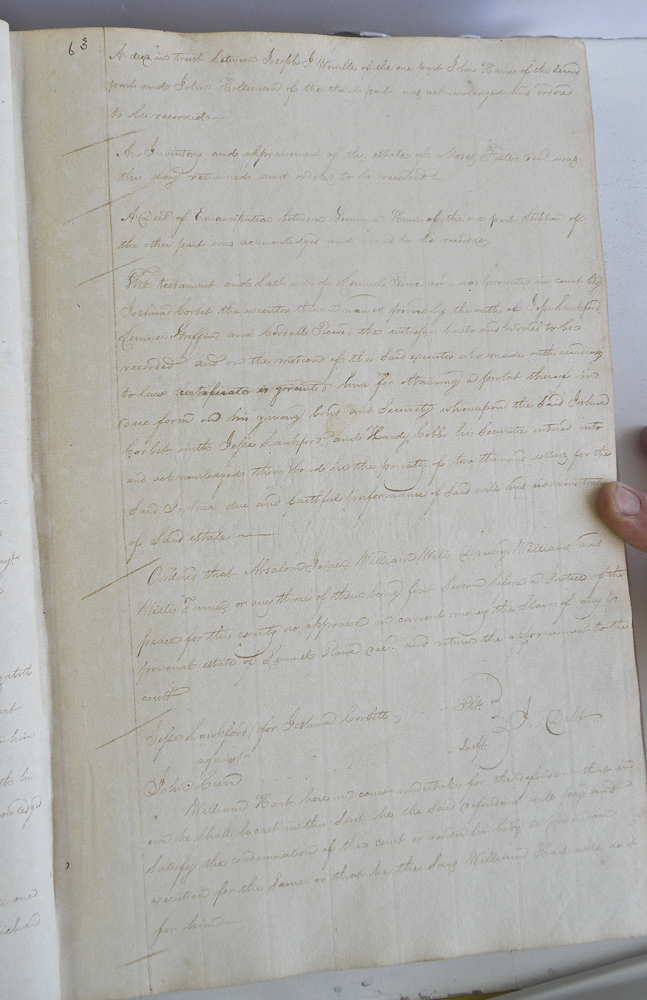 63
A deed in trust between Joseph J Womble of the one part John Harris of the second
part and John Holleman of the third part was acknowledged and ordered
to be recorded
An Inventory and appraisement of the estate of Moses Foster decd was
this day returned and ordered to be recorded
A Deed of Emancipation between Jemima Hunt of the one part of
the other part was acknowledged and ordered to be recorded
The testament and last will of Lemuel decd was presented in court by
Joshua Corbet the executor therein named proved by the oaths of Jesse Lankford
Lemuel Griffin and the witnesses hereto and ordered to be
recorded and on the motion of the said executor who made oath according
to Law certificate is granted him for obtaining a probat thereof in
due form on his giving bond and Security whereupon the said Joshua
Corbet with Jesse Lankford and Hardy Cobb his Securities entered into
and acknowledged their bond in the penalty of two thousand dollars for the
said Joshua's due and faithful performance of said will and administration
of said estate
Ordered that Absalom Jones William Wills Drewry Williams and
Willie Turner or any three of them being first Sworn before a Justice of the
peace for this county do appraise in current money the Slaves if any &
personal estate of Lemuel decd and return the appraisement to the
court
Jesse Lankford for Joshua Corbitt Plt
against In Debt
John Deft
William Hart here in court undertakes for the defendant that in
case he shall be cast in this Suit he the said defendant will pay and
satisfy the condemnation of the court or render his body to prison in
execution for the same or that he the said William Hart will do it
for him